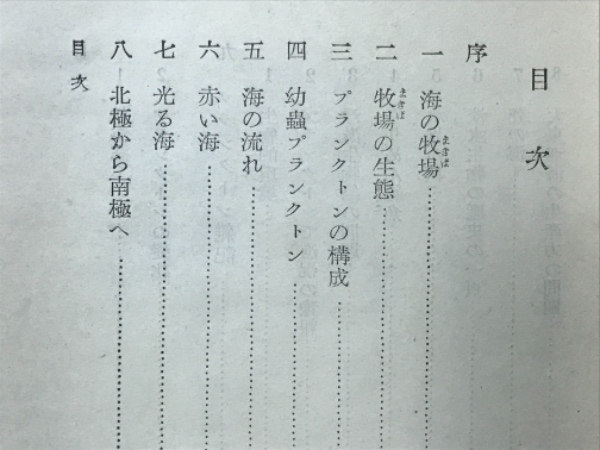 目次
序
一 海の牧場……
まきば
二 牧場の生態……
まきば
三 プランクトンの構成……
四 幼蟲プランクトン……
五 海の流れ……
六 赤い海……
七 光る海……
八 北極から南極へ……
目次